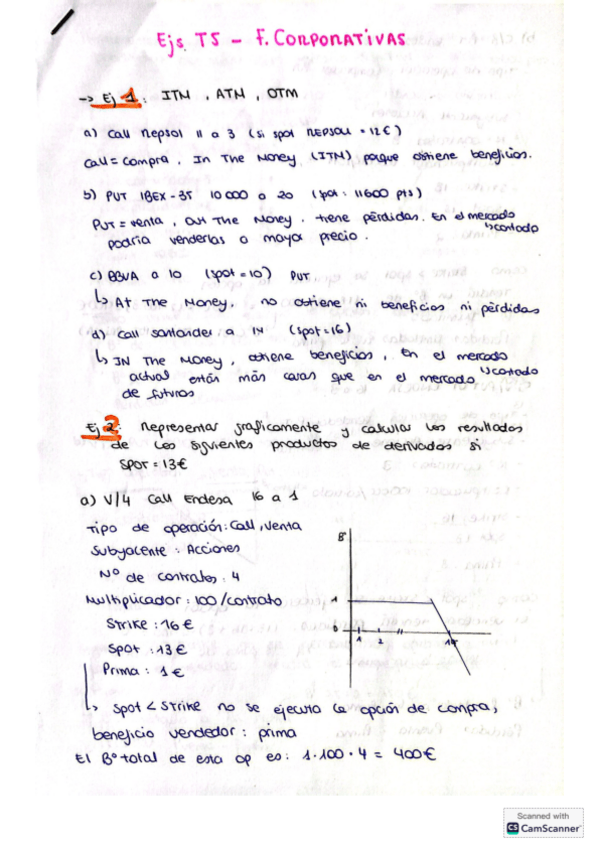 Ejs T5 - F. CORPORATIVAS
→ Ej 1: ITM, ATM, OTM
a) Call Repsol 11 a 3 (si spot REPSOL = 12€)
Call = compra, In The Money (ITM) porque obtiene beneficios.
b) PUT IBEX-35 10 000 a 20 (spot: 11600 pts)
PUT = venta, Out The Money, tiene pérdidas. En el mercado
↳ contado
podría venderlas a mayor precio.
c) BBVA a 10 (spot = 10) PUT
↳ At The Money, no obtiene ni beneficios ni pérdidas
d) Call Santander a 14 (spot = 16)
↳ IN The Money, obtiene beneficios, En el mercado
↳ contado
actual están más caras que en el mercado
de futuros
Ej 2: Representar graficamente y calcular los resultados
de los siguientes productos de derivados si
SPOT = 13€
a) V/4 Call Endesa 16 a 1
Tipo de operación: Call, Venta
Subyacente: Acciones
Nº de contratos: 4
Multiplicador: 100/contrato
Strike: 16 €
Spot: 13 €
Prima: 1 €
Bº
1
0
1 2
↳ Spot < Strike no se ejecuta la opción de compra,
beneficio vendedor: prima
El Bº total de esta op es: 1·100·4 = 400€
Scanned with
CS CamScanner